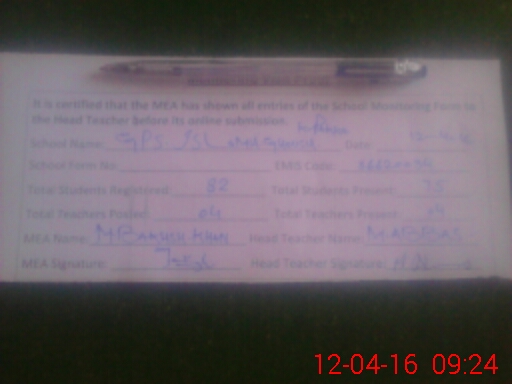 It is certified that the MEA has shown all entries of the School Monitoring Form to
the Head Teacher before its online submission.
School Name: GPS Date: 12-
School Form No: EMIS Code:
Total Students Registered: 82 Total Students Present: 75
Total Teachers Posted: 04 Total Teachers Present: 04
MEA Name: M BAKHSH KHAN Head Teacher Name: M. ABBAS
MEA Signature: Head Teacher Signature:
12-04-16 09:24